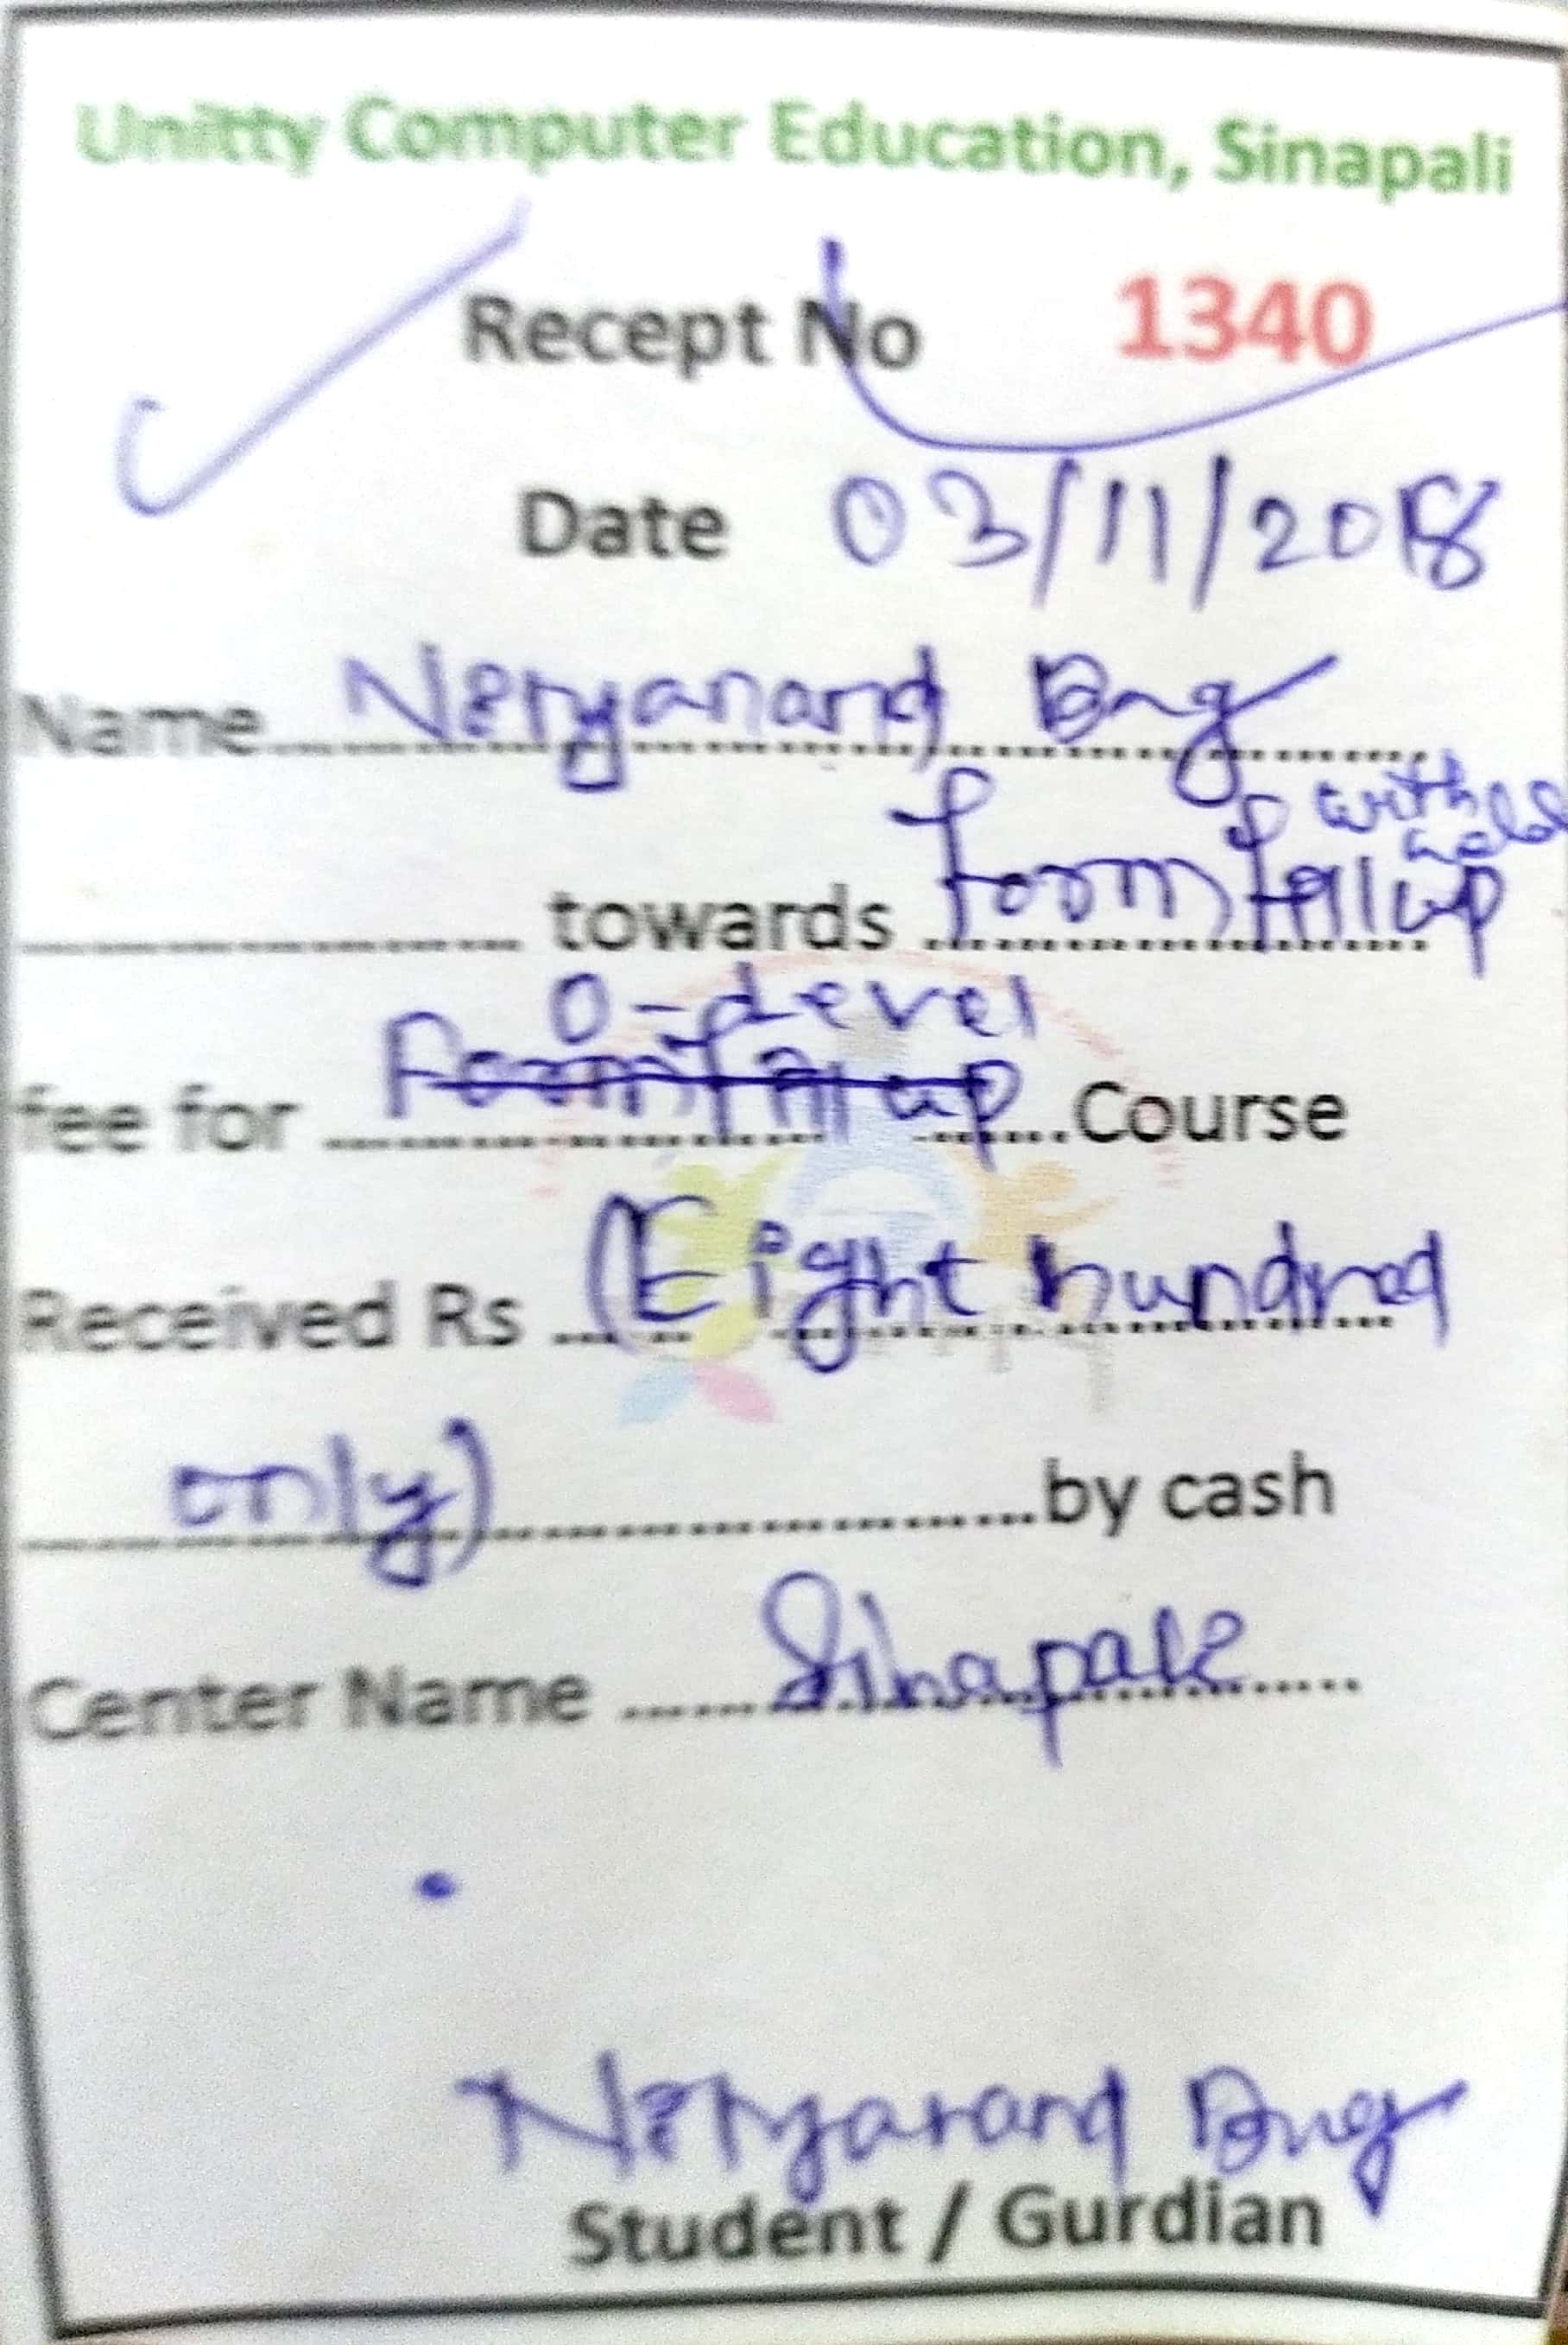 Unitty Computer Education, Sinapali
Recept No 1340
Date 03/11/2018
Name Nityanand Bag
with
towards form fillup
O-Level
fee for Form fillup Course
Received Rs (Eight hundred
only) by cash
Center Name Sinapali
Nityanand Bag
Student / Gurdian